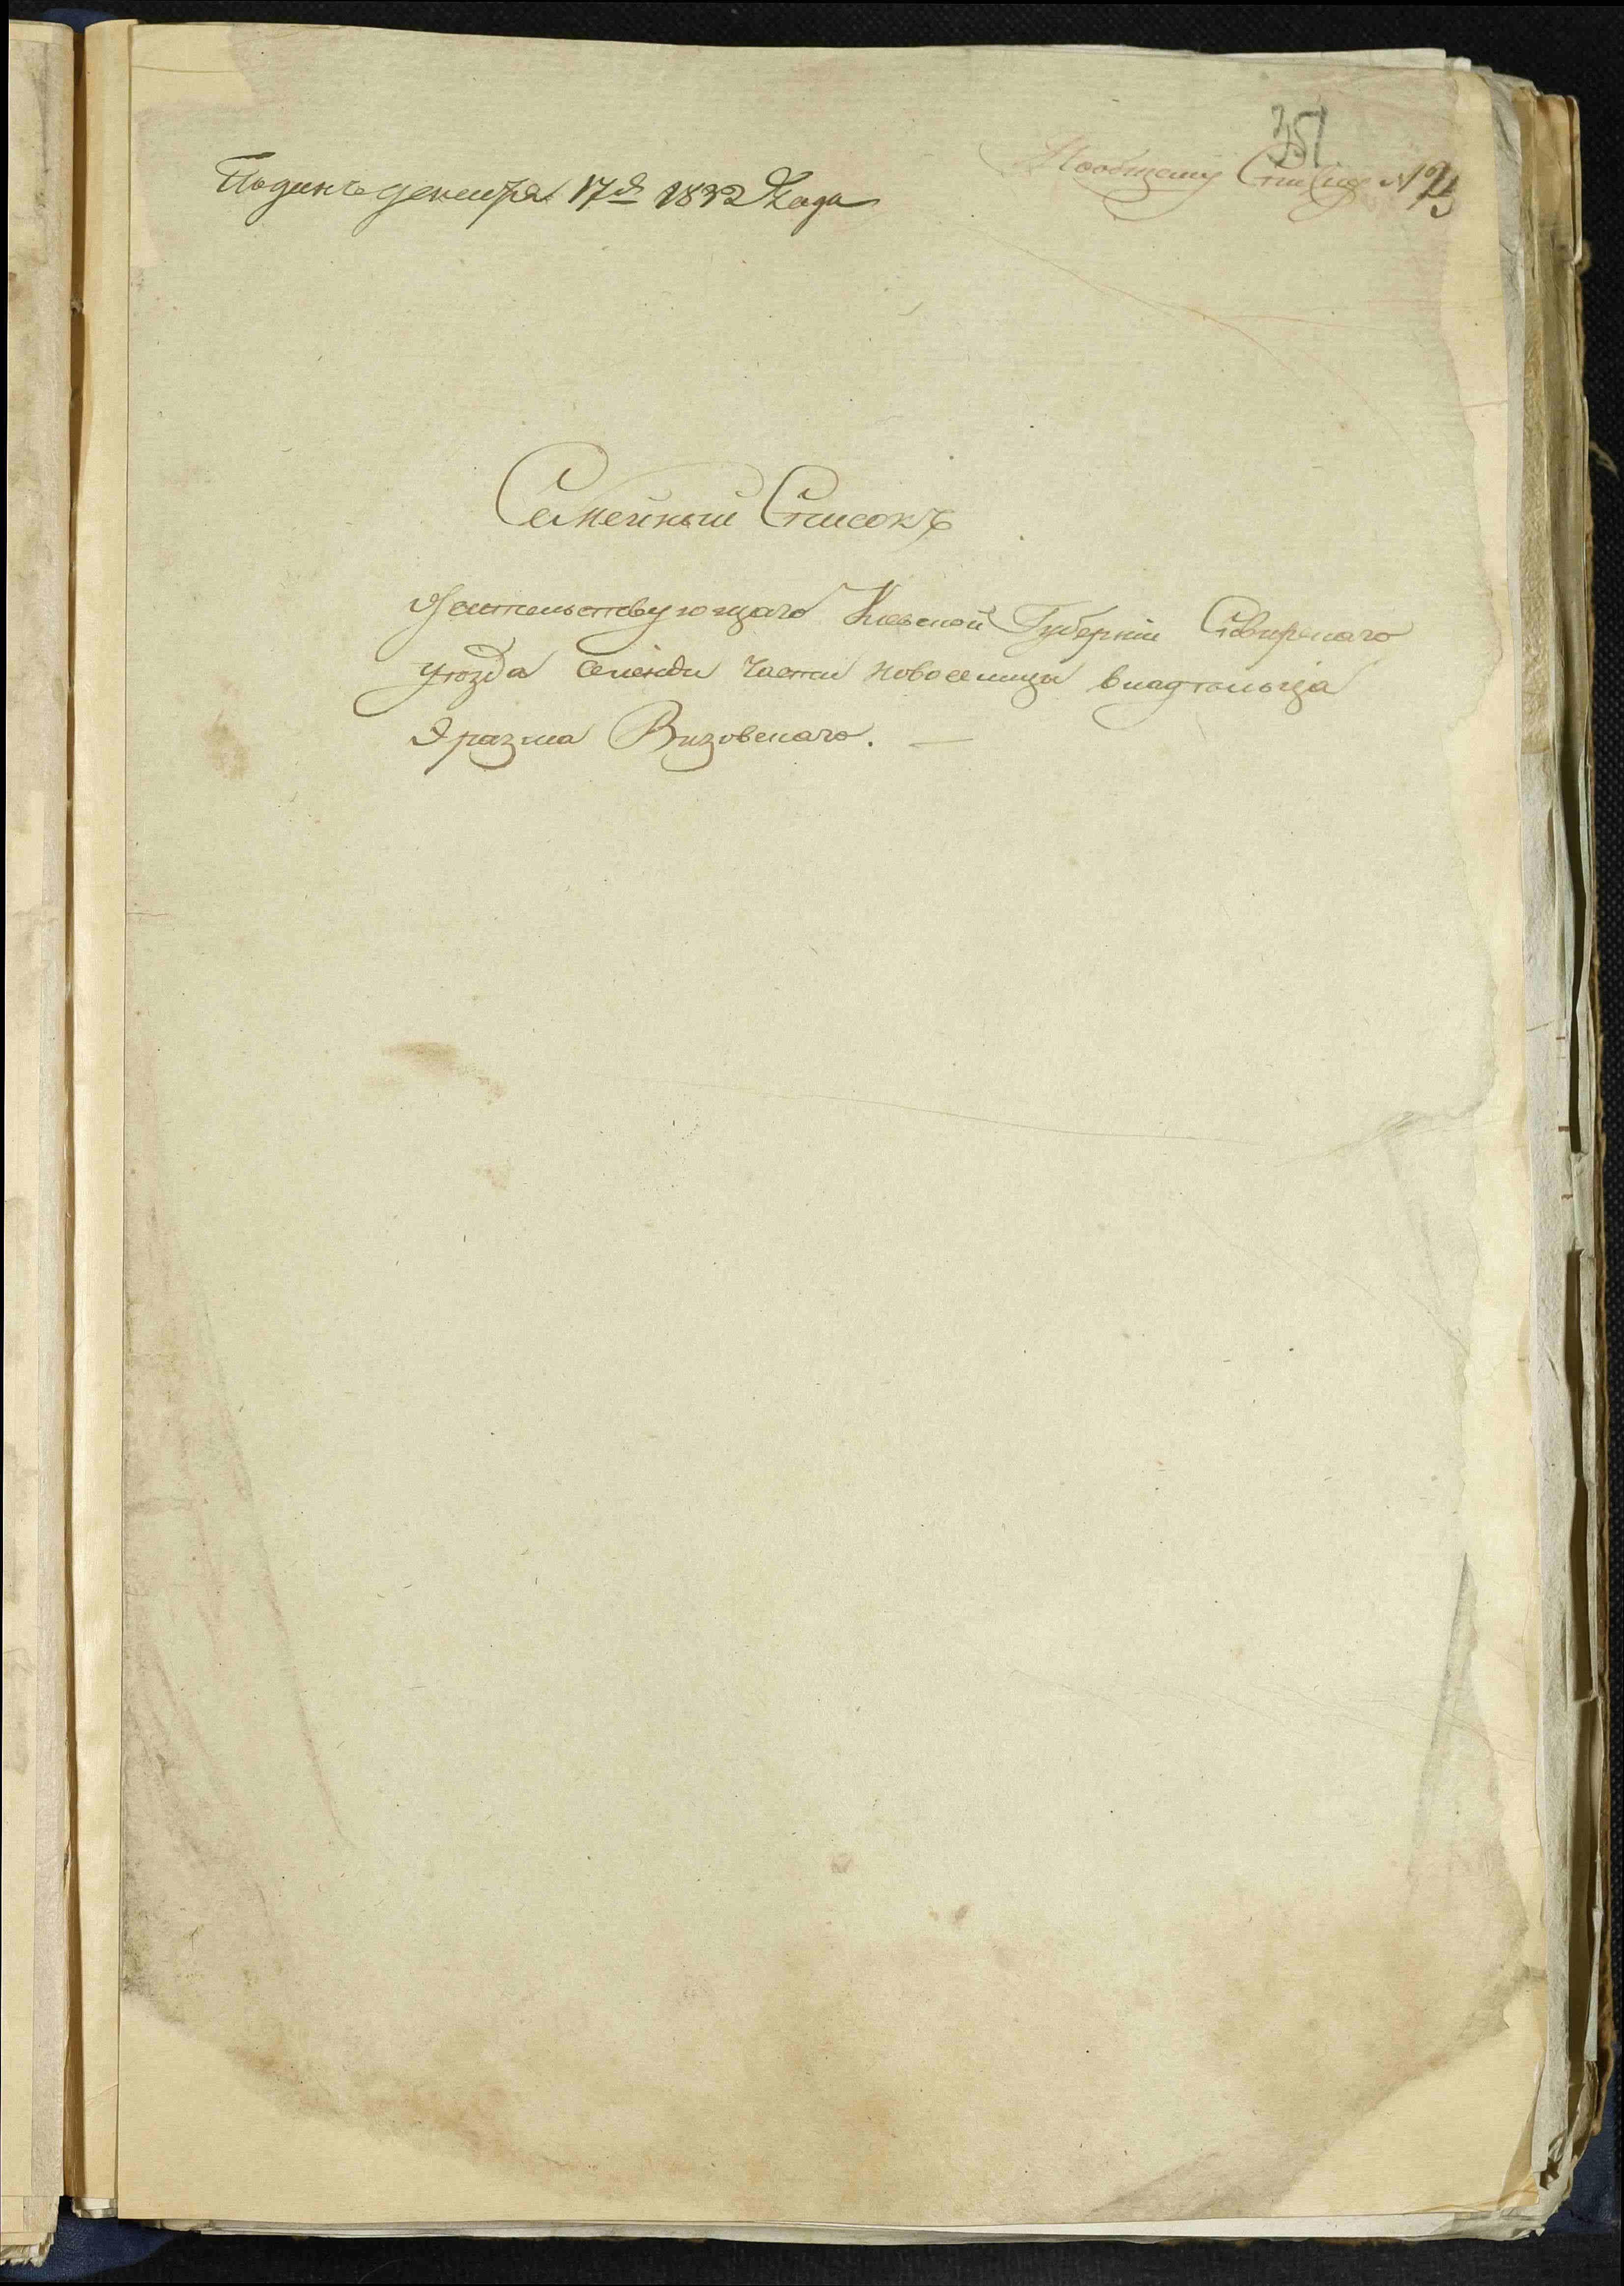 351.
Поданъ декабря 17го 1832 Года
По общему Списку №
Семейный Списокъ
Жительствующаго Киевской Губерніи Сквирскаго
уѣзда части Новоселица владѣльца
Эразма Визовскаго. —